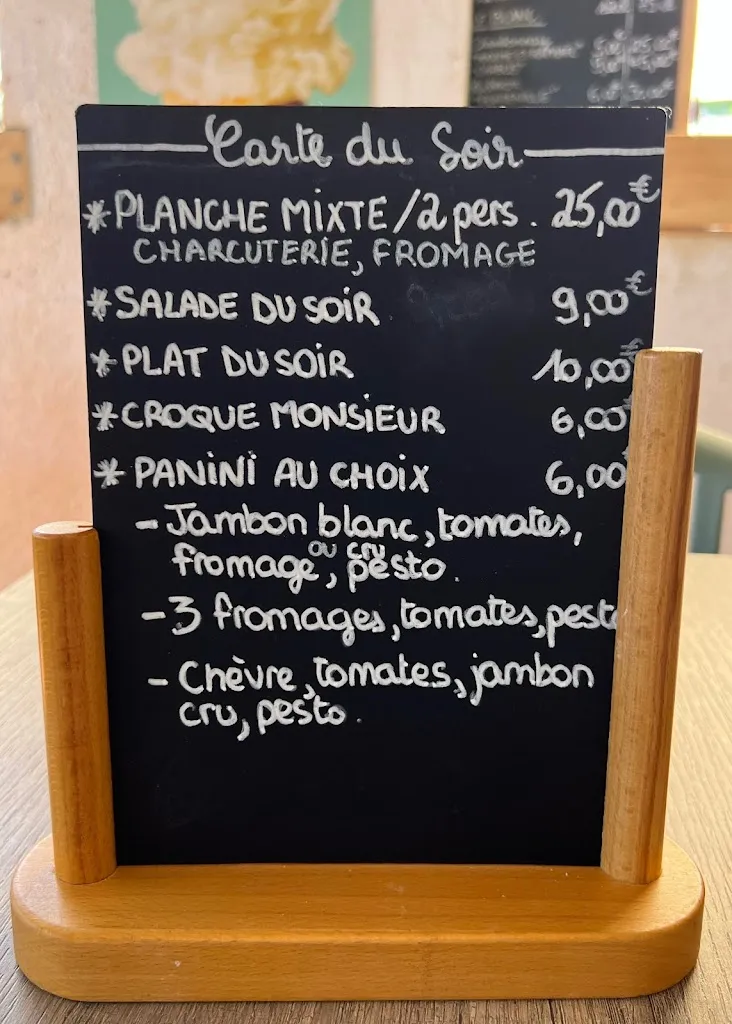 Carte du Soir
* PLANCHE MIXTE / 2 pers. 25,00€
CHARCUTERIE, FROMAGE
* SALADE DU SOIR 9,00€
* PLAT DU SOIR 10,00€
* CROQUE MONSIEUR 6,00
* PANINI AU CHOIX 6,00
- Jambon blanc, tomates,
ou cru
fromage, pesto.
- 3 fromages, tomates, pesto
- Chèvre, tomates, jambon
cru, pesto.